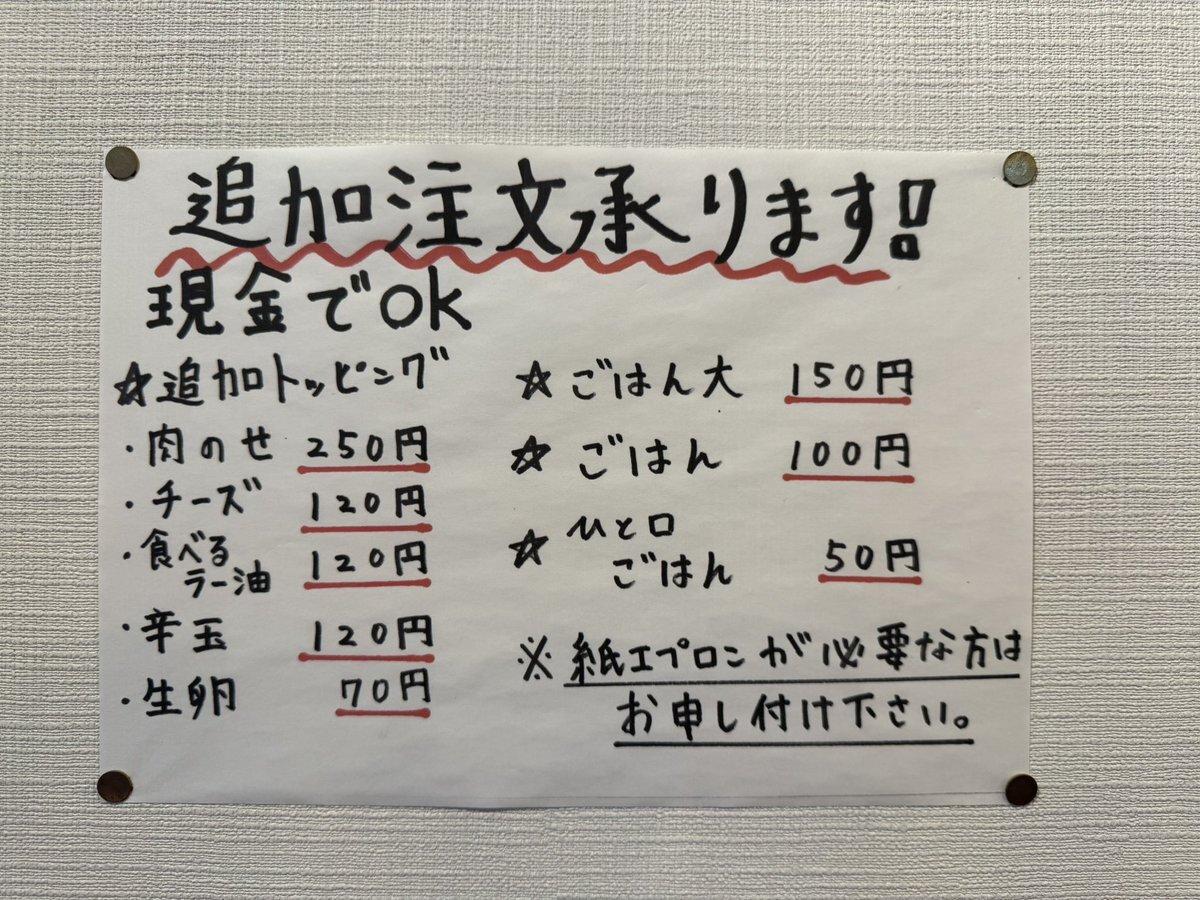 追加注文承ります!
現金でOK
☆追加トッピング
・肉のせ 250円
・チーズ 120円
・食べる
ラー油 120円
・辛玉 120円
・生卵 70円
☆ごはん大 150円
☆ごはん 100円
☆ひと口
ごはん 50円
※紙エプロンが必要な方は
お申し付け下さい。